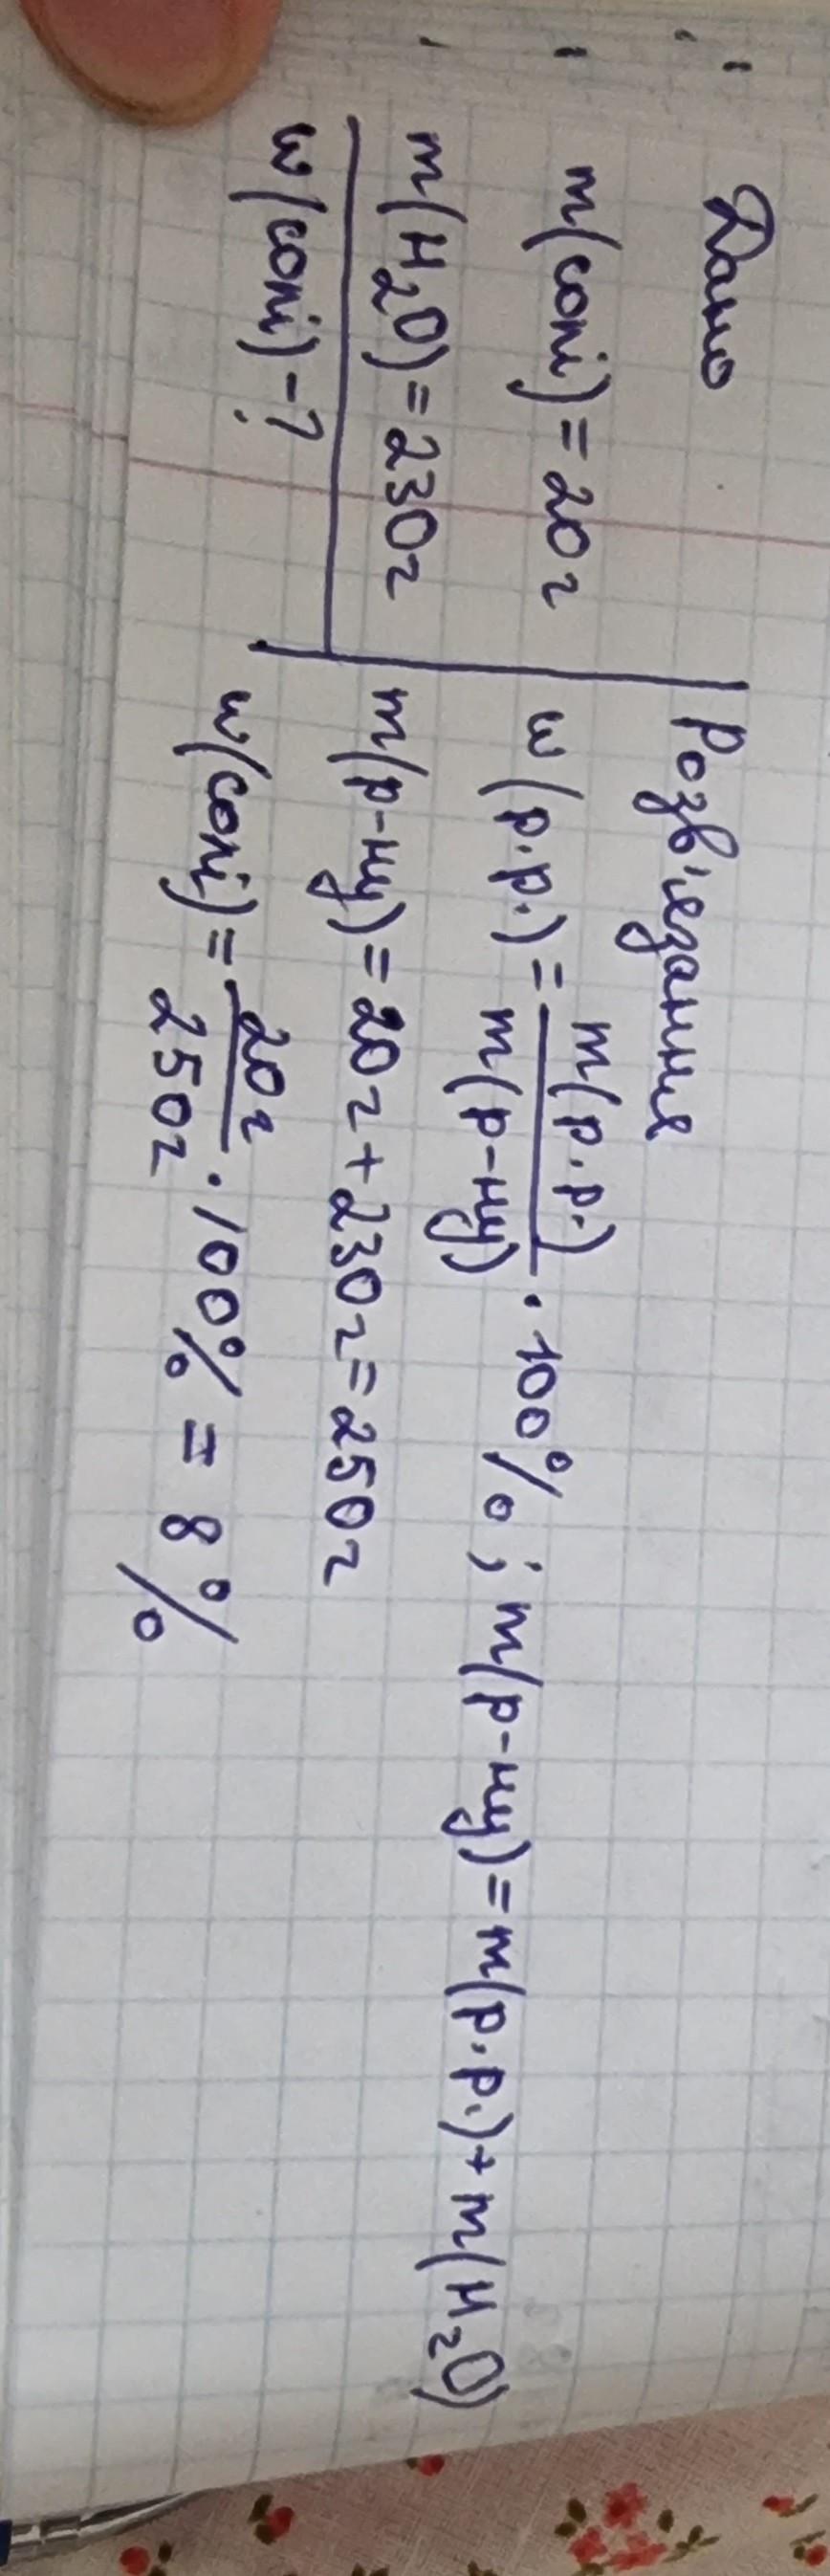 Дано
m(солі) = 20 г
m(H₂O) = 230 г
w(солі) - ?
Розв'язання
w(р.р.) = m(р.р.) / m(р-ну) · 100% ; m(р-ну) = m(р.р.) + m(H₂O)
m(р-ну) = 20 г + 230 г = 250 г
w(солі) = 20 г / 250 г · 100% = 8%